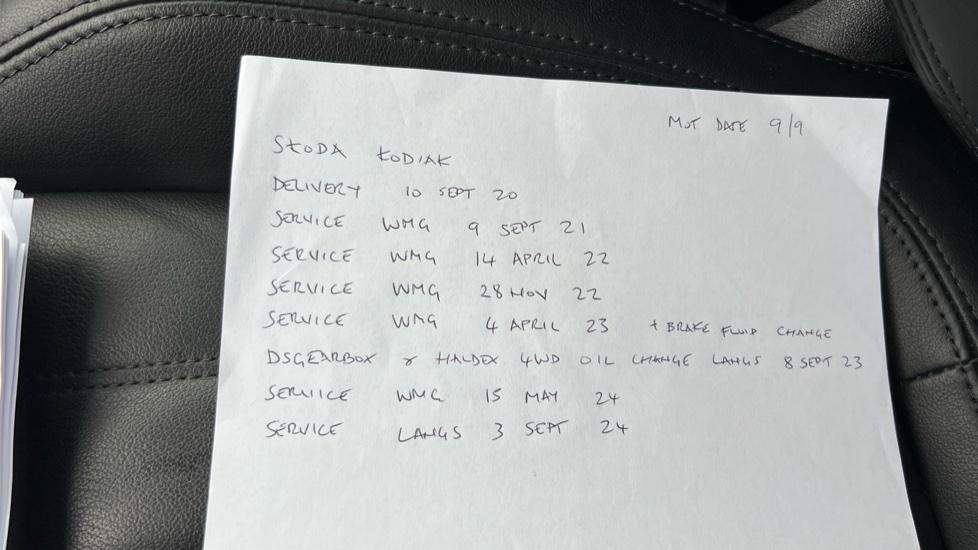 MOT DATE 9/9
SKODA KODIAK
DELIVERY 10 SEPT 20
SERVICE WMG 9 SEPT 21
SERVICE WMG 14 APRIL 22
SERVICE WMG 28 NOV 22
SERVICE WMG 4 APRIL 23 + BRAKE FLUID CHANGE
DSGEARBOX & HALDEX 4WD OIL CHANGE LANGS 8 SEPT 23
SERVICE WMG 15 MAY 24
SERVICE LANGS 3 SEPT 24